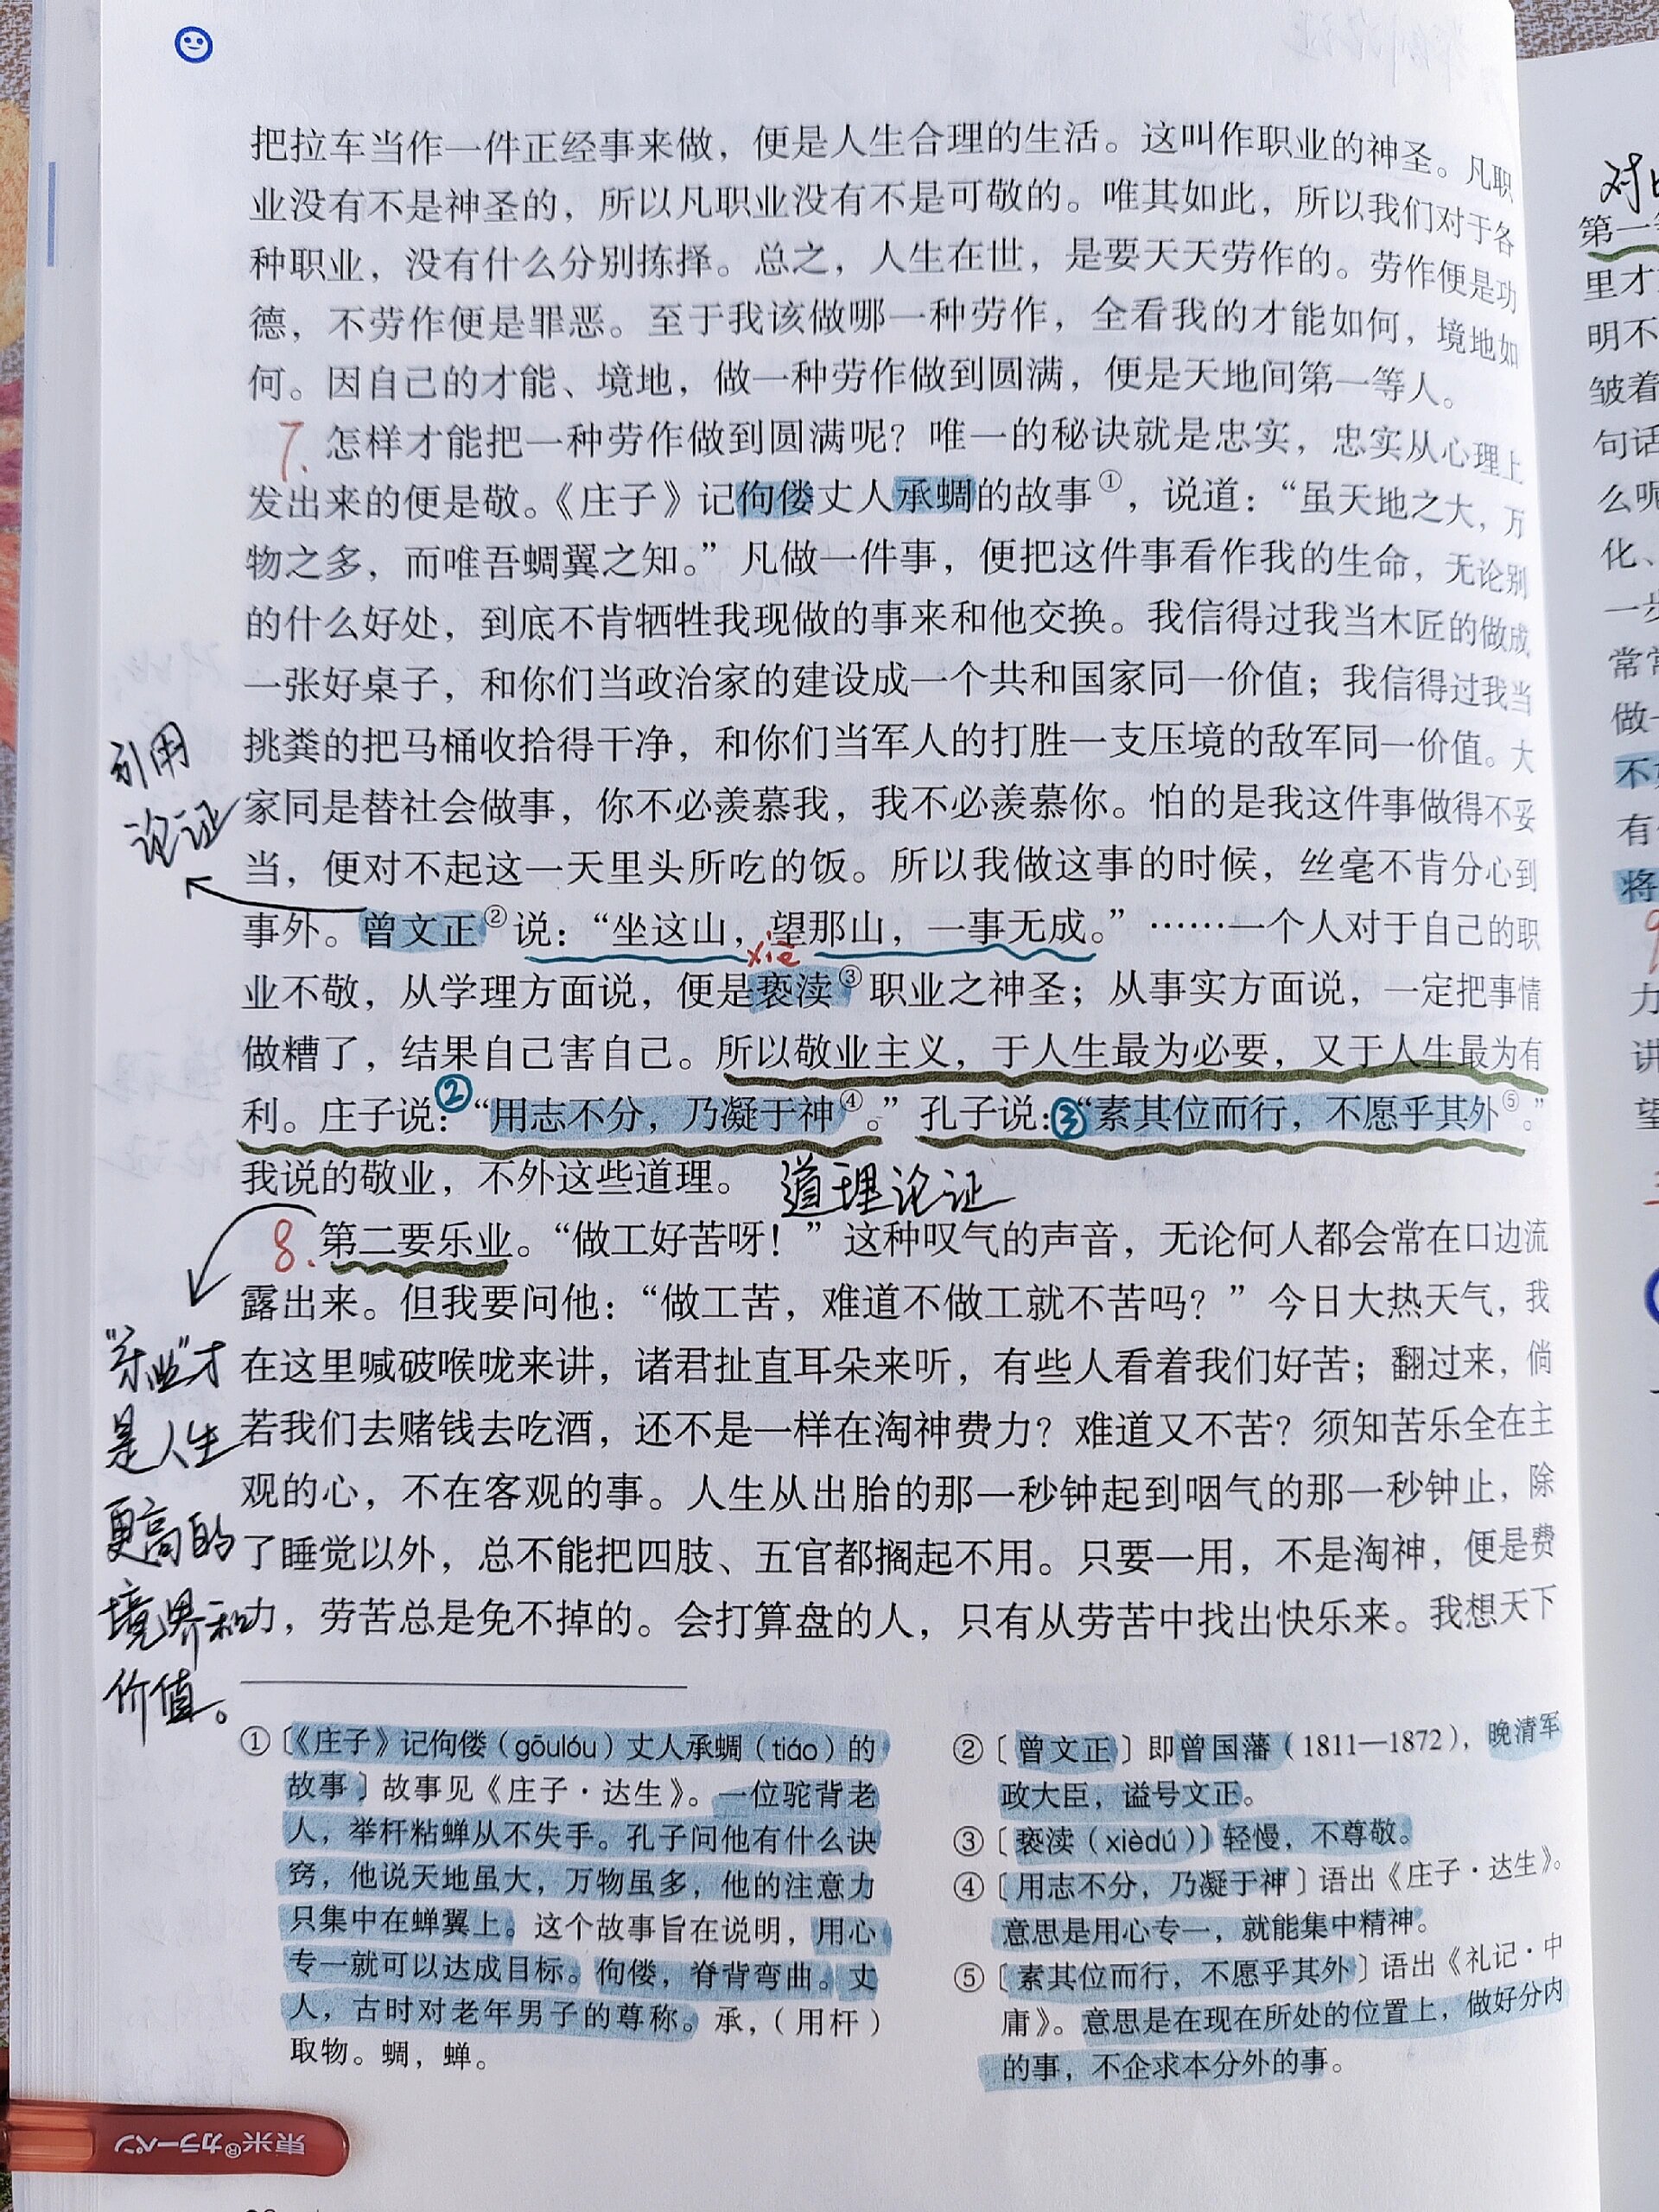 把拉车当作一件正经事来做，便是人生合理的生活。这叫作职业的神圣。凡职
业没有不是神圣的，所以凡职业没有不是可敬的。唯其如此，所以我们对于各
种职业，没有什么分别拣择。总之，人生在世，是要天天劳作的。劳作便是功
德，不劳作便是罪恶。至于我该做哪一种劳作，全看我的才能如何，境地如
何。因自己的才能、境地，做一种劳作做到圆满，便是天地间第一等人。
7. 怎样才能把一种劳作做到圆满呢？唯一的秘诀就是忠实，忠实从心理上
发出来的便是敬。《庄子》记佝偻丈人承蜩的故事①，说道：“虽天地之大，万
物之多，而唯吾蜩翼之知。”凡做一件事，便把这件事看作我的生命，无论别
的什么好处，到底不肯牺牲我现做的事来和他交换。我信得过我当木匠的做成
一张好桌子，和你们当政治家的建设成一个共和国家同一价值；我信得过我当
挑粪的把马桶收拾得干净，和你们当军人的打胜一支压境的敌军同一价值。大
家同是替社会做事，你不必羡慕我，我不必羡慕你。怕的是我这件事做得不妥
当，便对不起这一天里头所吃的饭。所以我做这事的时候，丝毫不肯分心到
事外。曾文正②说：“坐这山，望那山，一事无成。”……一个人对于自己的职
xiè
业不敬，从学理方面说，便是亵渎③职业之神圣；从事实方面说，一定把事情
做糟了，结果自己害自己。所以敬业主义，于人生最为必要，又于人生最为有
利。庄子说：②“用志不分，乃凝于神④。”孔子说：③“素其位而行，不愿乎其外⑤。”
我说的敬业，不外这些道理。 道理论证
8. 第二要乐业。“做工好苦呀！”这种叹气的声音，无论何人都会常在口边流
露出来。但我要问他：“做工苦，难道不做工就不苦吗？”今日大热天气，我
在这里喊破喉咙来讲，诸君扯直耳朵来听，有些人看着我们好苦；翻过来，倘
若我们去赌钱去吃酒，还不是一样在淘神费力？难道又不苦？须知苦乐全在主
观的心，不在客观的事。人生从出胎的那一秒钟起到咽气的那一秒钟止，除
了睡觉以外，总不能把四肢、五官都搁起不用。只要一用，不是淘神，便是费
力，劳苦总是免不掉的。会打算盘的人，只有从劳苦中找出快乐来。我想天下
引用
论证
“乐业”才
是人生
更高的
境界和
价值。
①〔《庄子》记佝偻（gōulóu）丈人承蜩（tiáo）的
故事〕故事见《庄子·达生》。一位驼背老
人，举杆粘蝉从不失手。孔子问他有什么诀
窍，他说天地虽大，万物虽多，他的注意力
只集中在蝉翼上。这个故事旨在说明，用心
专一就可以达成目标。佝偻，脊背弯曲。丈
人，古时对老年男子的尊称。承，（用杆）
取物。蜩，蝉。
②〔曾文正〕即曾国藩（1811—1872），晚清军
政大臣，谥号文正。
③〔亵渎（xièdú）〕轻慢，不尊敬。
④〔用志不分，乃凝于神〕语出《庄子·达生》。
意思是用心专一，就能集中精神。
⑤〔素其位而行，不愿乎其外〕语出《礼记·中
庸》。意思是在现在所处的位置上，做好分内
的事，不企求本分外的事。
第一
里才
明不
皱着
句话
么呢
化、
一步
常常
做一
不
有
将
力
讲
望
東米®カラーペン